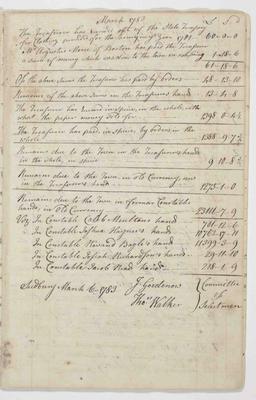 March 1783
The Treasurer has received out of the State Treasury
for Clothing provided for the army in the year 1781 60-0-0
Mr Augustus Moore of Boston has paid the Treasurer
a sum of money which was due to the Town 1-18-6
61-18-6
Of the above sum the Treasurer has paid by orders 48-13-10
Remains of the above sum in the Treasurers hand 13-4-8
The Treasurer has received in specie, in the whole, with
what the paper money sold for 1398-0-4
The Treasurer has paid, in specie, by orders in the
whole 1388-9-7
Remains due to the Town in the Treasurers hands
in the whole, in specie 9-10-8
Remains due to the Town in Old Currency, now
in the Treasurers hand 1275-1-0
Remains due to the Town in former Constable
hands, in Old Currency 23111-7-9
Viz In Constable Caleb Moultons hand
In Constable Joshua Haynes's hand
In Constable Howard Bogle's hand 11379-3-9
In Constable Josiah Richardson's hand 29-11-10
In Constable Jacob Read hand 218-1-9
Sudbury March 6 1783
Thos Walker
Committee
of
Selectmen